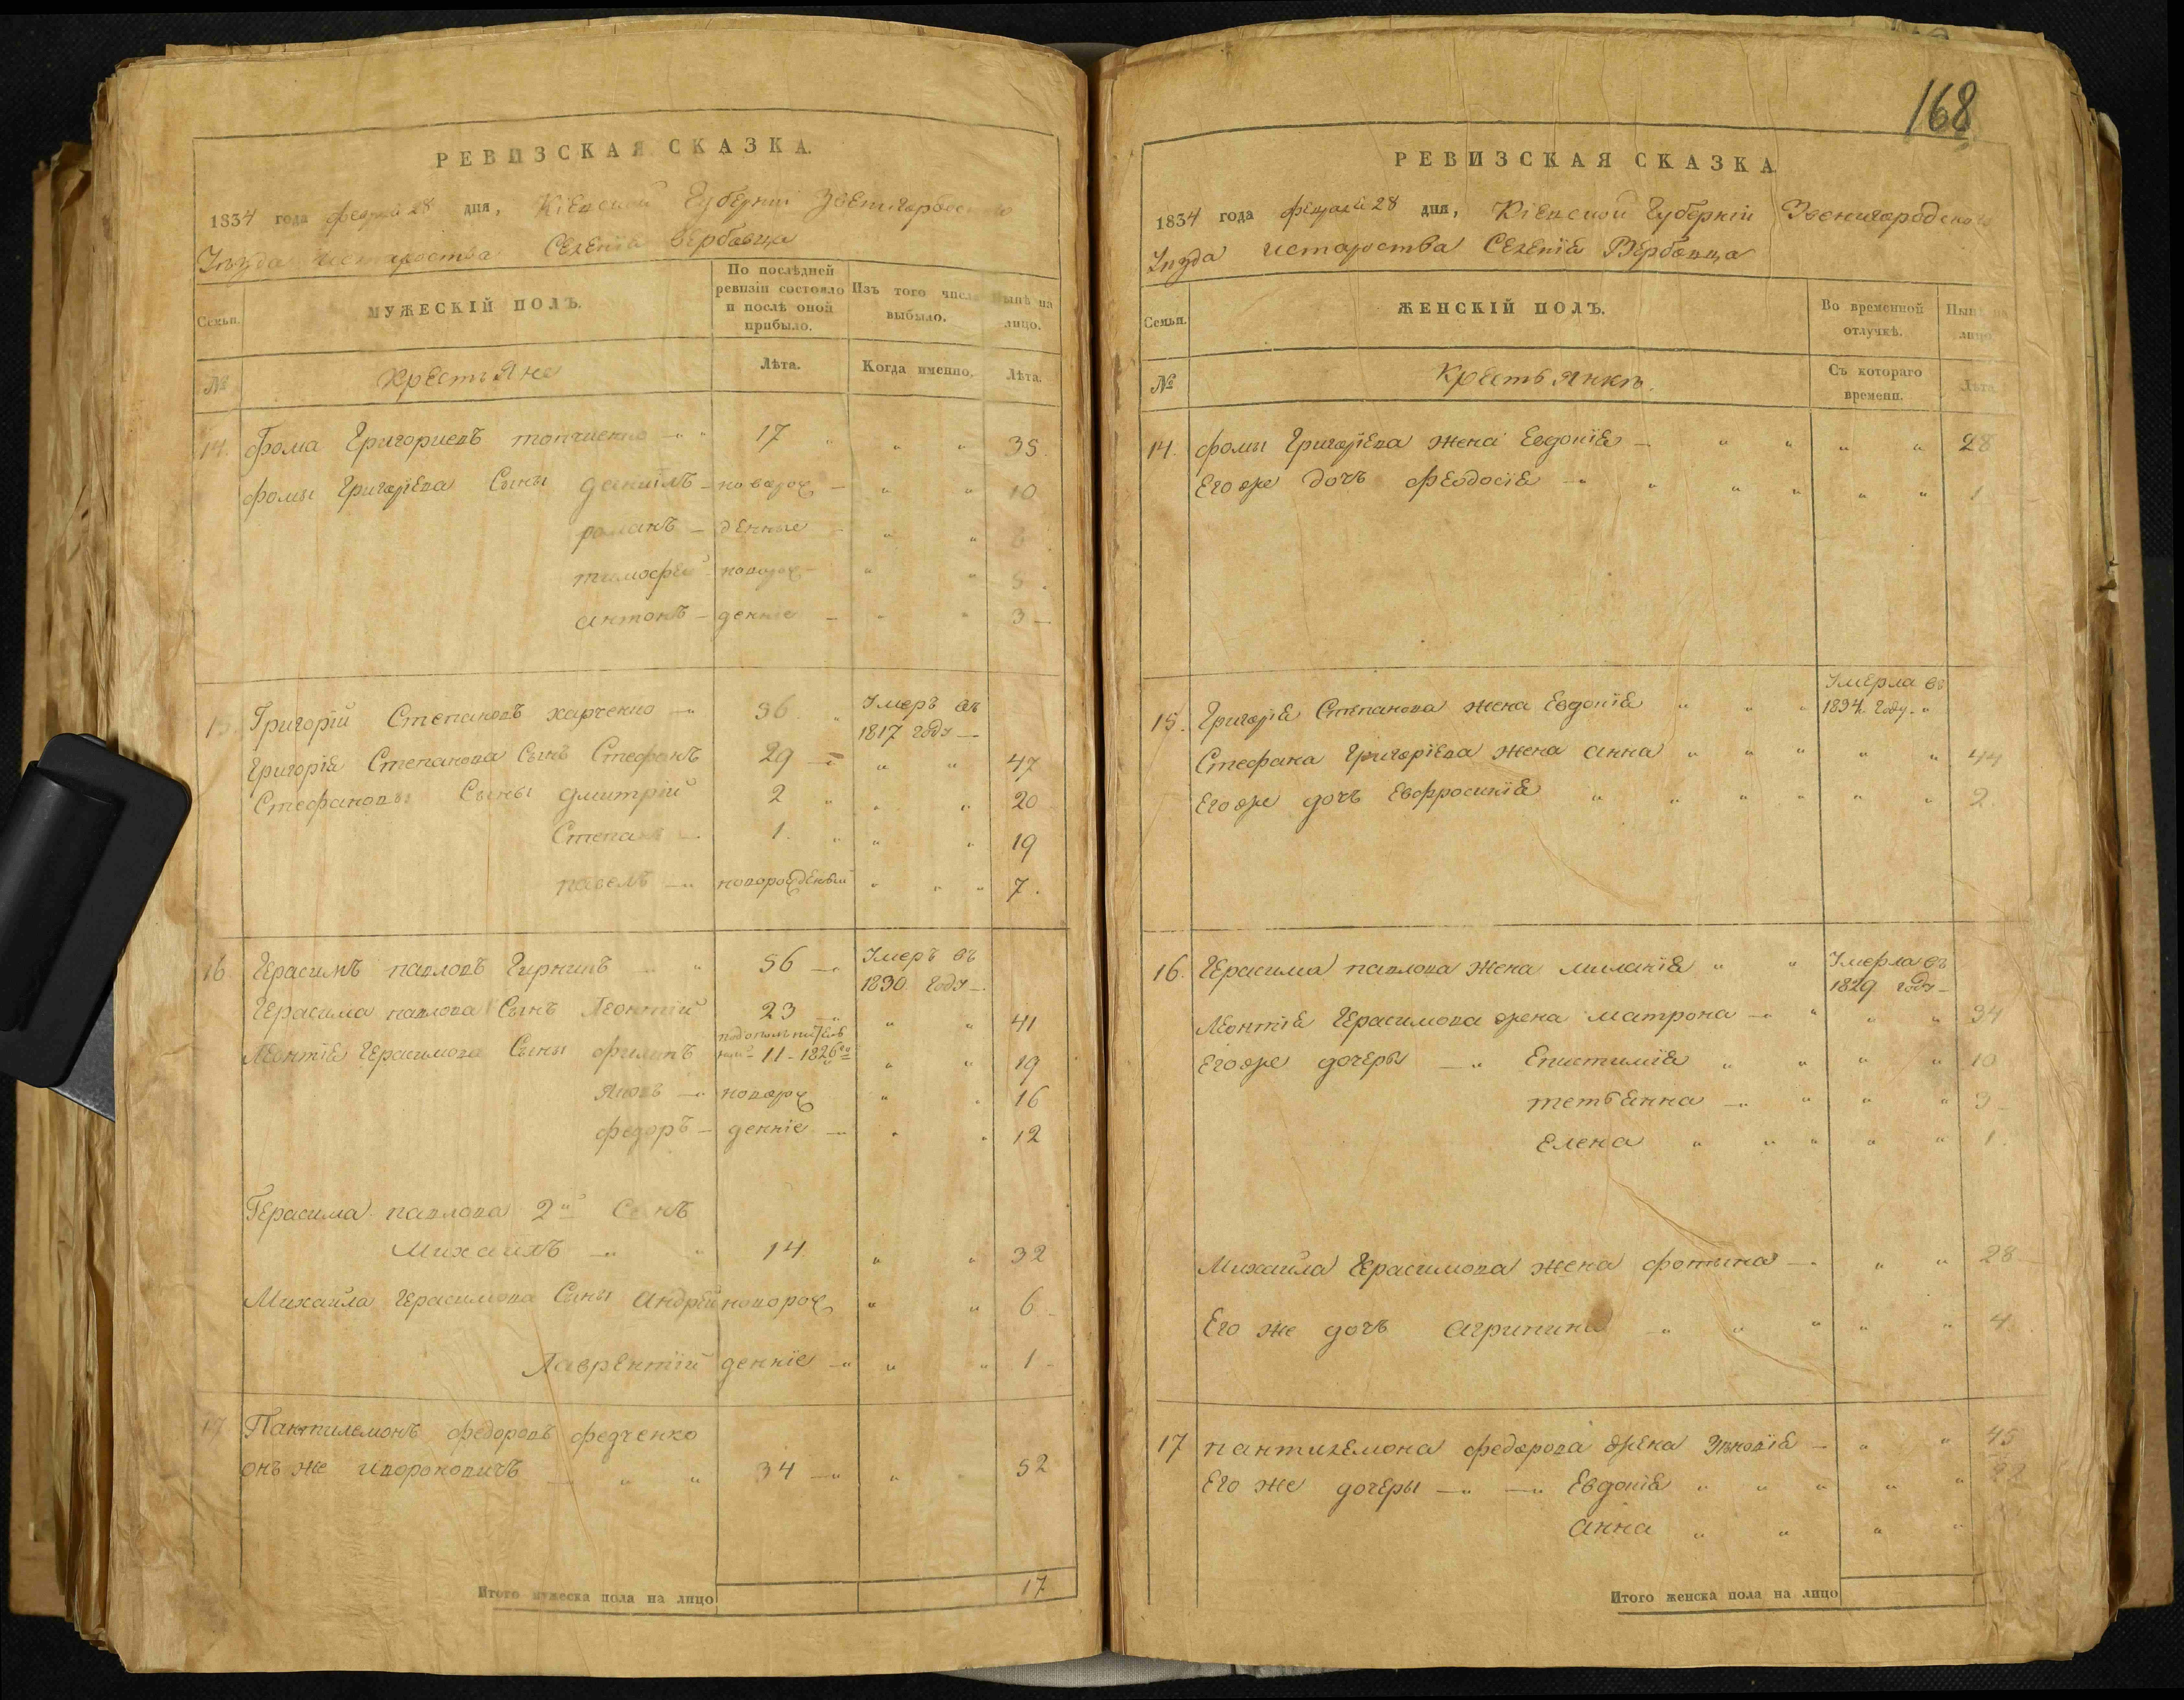 РЕВИЗСКАЯ СКАЗКА.
1834 года февраля 28 дня, Кіевской Губерніи Звенигородского
Уезда Староства Селенія Вербовца
Семьи.
МУЖЕСКІЙ ПОЛЪ.
По послѣдней ревизіи состояло и послѣ оной прибыло.
Изъ того числа выбыло.
Нынѣ на лицо.
№
Крестьяне
Лѣта.
Когда именно.
Лѣта.
14. Фома Григориевъ топчиенко 17 35.
Фомы Григоріева Сыны даниилъ новорож 10
романъ денные 6
тимофей новорож 5.
антонъ денніе 3
15 Григорій Степановъ харченко 36 Умеръ въ 1817 году
Григорія Степанова Сынъ Стефанъ 29 47
Стефановы Сыны дмитрій 2 20
Степанъ 1. 19
павелъ новорожденный 7.
16 Герасимъ павловъ Гирничъ 56 Умеръ въ 1830 году
Герасима павлова Сынъ Леонтій 23 41
Леонтія Герасимова Сыны филипъ 11 1826 19
яковъ новорож 16
федоръ денніе 12
Герасима павлова 2й Сынъ
Михаилъ 14 32
Михаила Герасимова Сыны андрей новорож 6
Лаврентій денніе 1
17 Пантилемонъ федоровъ федченко
онъ же 34 52
Итого мужеска пола на лицо 17
168
РЕВИЗСКАЯ СКАЗКА
1834 года февраля 28 дня, Кіевской Губерніи Звенигородского
Уезда Староства Селенія Вербовца
Семьи.
ЖЕНСКІЙ ПОЛЪ.
Во временной отлучкѣ.
Нынѣ на лицо
№
Крестьянкъ.
Съ котораго времени.
Лѣта
14. Фомы Григоріева жена Евдокія 28
Его же дочъ Феодосія 1
15. Григорія Степанова жена Евдокія Умерла въ 1834 году
Стефана Григоріева жена анна 44
Его же дочъ Евфросинія 2.
16. Герасима павлова жена миланія Умерла въ 1829 году
Леонтія Герасимова жена матрона 34
Его же дочеры Епистимія 10
тетьянна 3
Елена 1.
Михаила Герасимова жена фотына 28
Его же дочъ агрипина 4.
17 пантилемона федорова жена Зѣновія 45
Его же дочеры Евдокія 22
анна
Итого женска пола на лицо